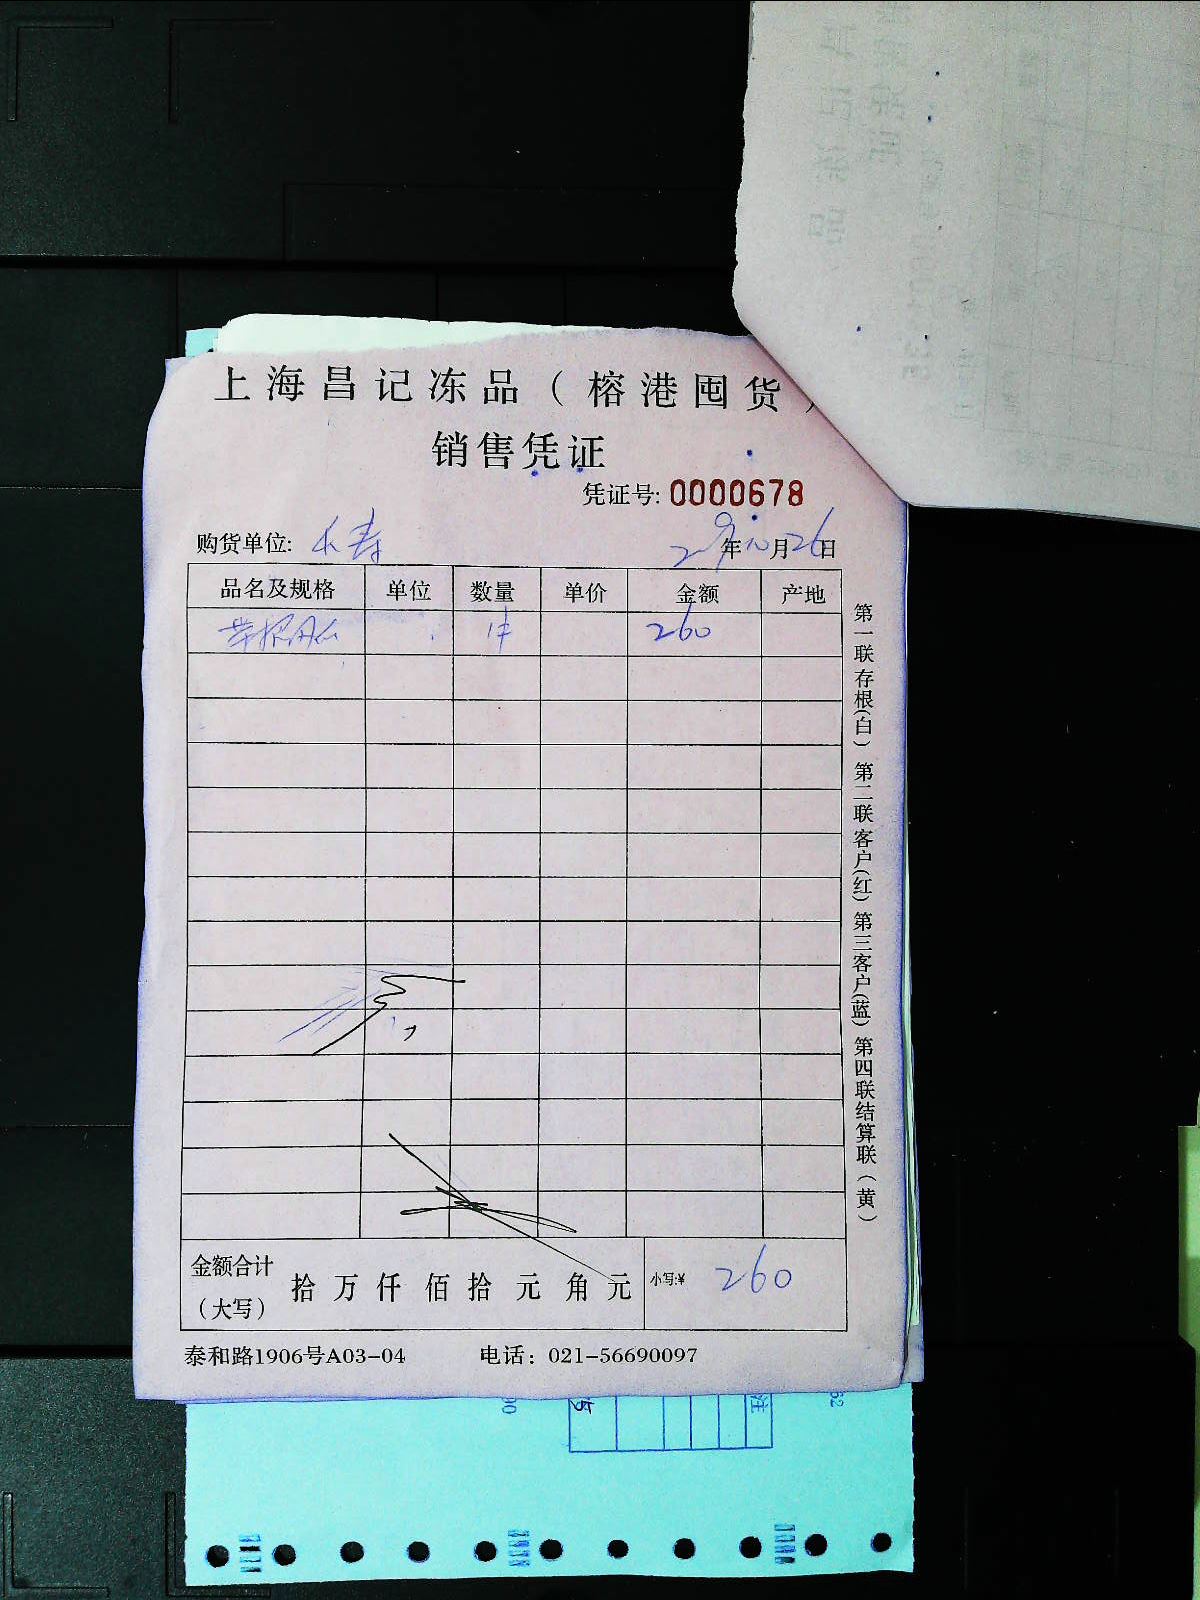 上海昌记冻品（榕港囤货）
销售凭证
凭证号: 0000678
购货单位: 长寿 年10月26日
品名及规格 单位 数量 单价 金额 产地
1件 260
金额合计（大写） 拾万仟佰拾元角元 小写:¥ 260
泰和路1906号A03-04 电话：021-56690097
第一联存根(白) 第二联客户(红) 第三客户(蓝) 第四联结算联(黄)